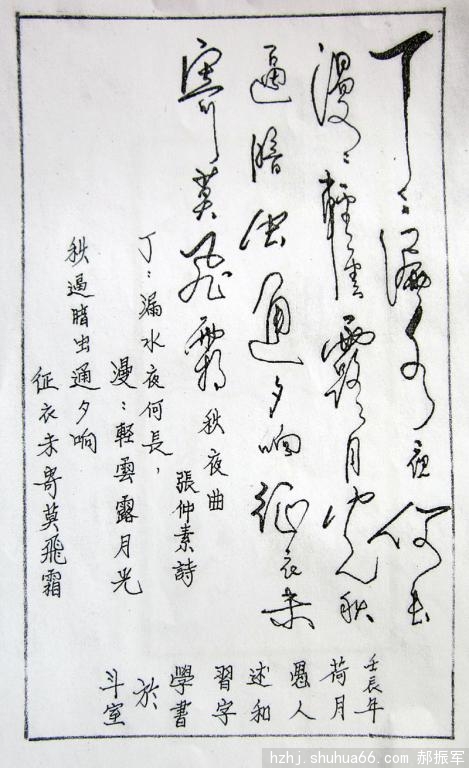 丁〻漏水夜何长
漫〻輕雲露月光秋
逼暗虫通夕响征衣未
寄莫飛霜
秋夜曲
張仲素詩
丁〻漏水夜何長，
漫〻輕雲露月光
秋逼暗虫通夕响
征衣未寄莫飛霜
壬辰年
荷月
愚人
述和
習字
學書
於
斗室
hzhj.shuhua66.com 郝振军